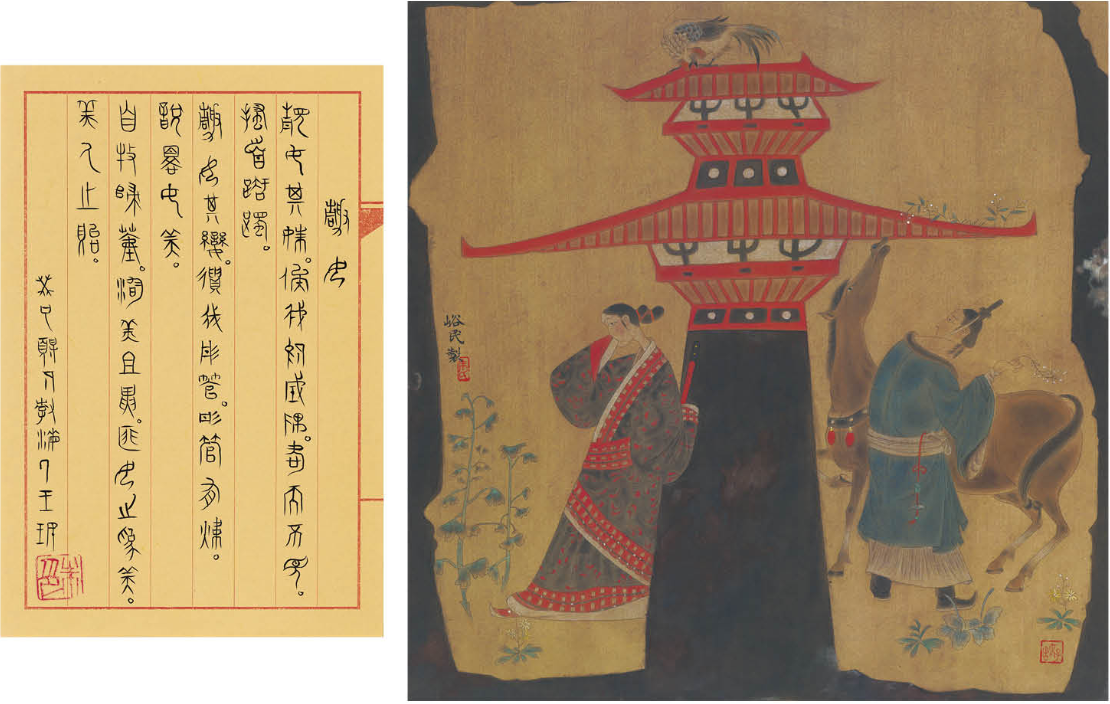 靜女
靜女其姝。俟我於城隅。愛而不見。
搔首踟躕。
靜女其孌。貽我彤管。彤管有煒。
說懌女美。
自牧歸荑。洵美且異。匪女之為美。
美人之貽。
峪民製